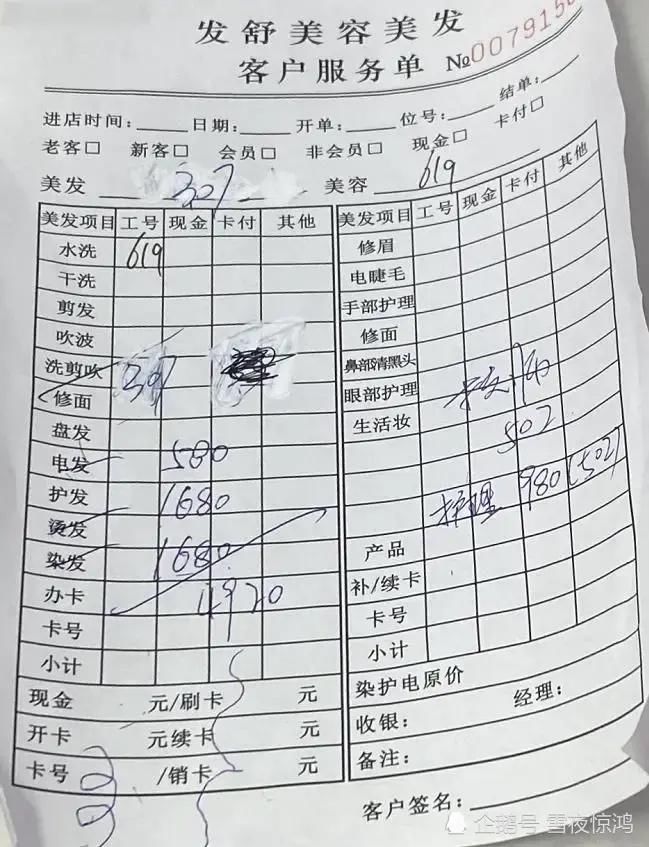 发舒美容美发
客户服务单 №007915
进店时间：____ 日期：____ 开单：____ 位号：____ 结单：____
老客□ 新客□ 会员□ 非会员□ 现金□ 卡付□
美发 307 美容 619
美发项目 工号 现金 卡付 其他
水洗 619
干洗
剪发
吹波
洗剪吹 397
修面
盘发
电发 580
护发 1680
烫发
染发 1680
办卡 4920
卡号
小计
现金 元/刷卡 元
开卡 元续卡 元
卡号 /销卡 元
美发项目 工号 现金 卡付 其他
修眉
电睫毛
手部护理
修面
鼻部清黑头
眼部护理
生活妆 502
护理 980 (502)
产品
补/续卡
卡号
小计
染护电原价
收银： 经理：
备注：
客户签名：
企鹅号 雪夜惊鸿